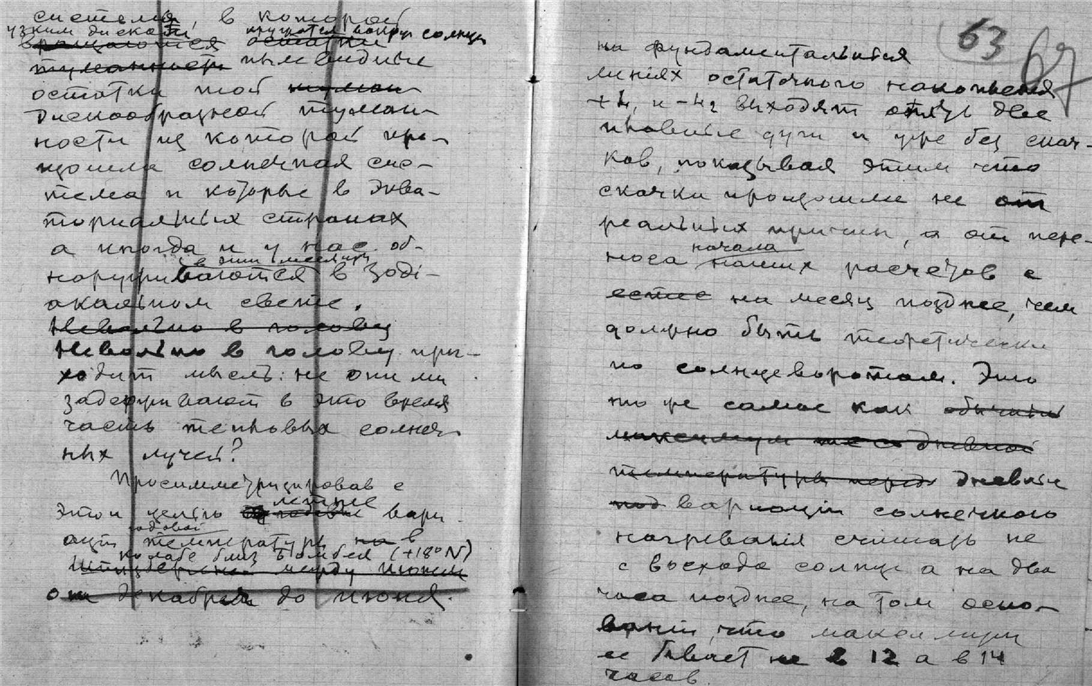 система, в которой
узким диском кружатся вокруг солнца
вращаются остатки
туманной пылевидные
остатки той
дискообразной туман-
ности из которой про-
изошла солнечная сис-
тема и которые в эква-
ториальных странах
а иногда и у нас об-
в эти месяцы
наруживаются в зоді-
акальном свете.
Невольно в голову
Невольно в голову при-
ходит мысль: не они ли
задерживают в это время
часть тепловых солнеч-
ных лучей?
Просимметризировав с
этой целью летние вари-
годовой
ации температуры в
Колабе близ Бомбея (+18°N)
между июнем
от декабря до июня.
63 67
на фундаментальных
линиях остаточного накопления
+h, и -h2 выходят опять две
плавные дуги и уже без скач-
ков, показывая этим что
скачки произошли не от
реальных причин, а от пере-
начала
носа наших расчетов с
на месяц позднее, чем
должно быть теоретически
по солнцеворотам. Это
то же самое как обычный
максимум дневной
температуры перед дневные
под вариаціи солнечного
нагреванія считать не
с восхода солнца а на два
часа позднее, на том осно-
ваніи, что максимум
ее бывает не в 12 а в 14
часов.